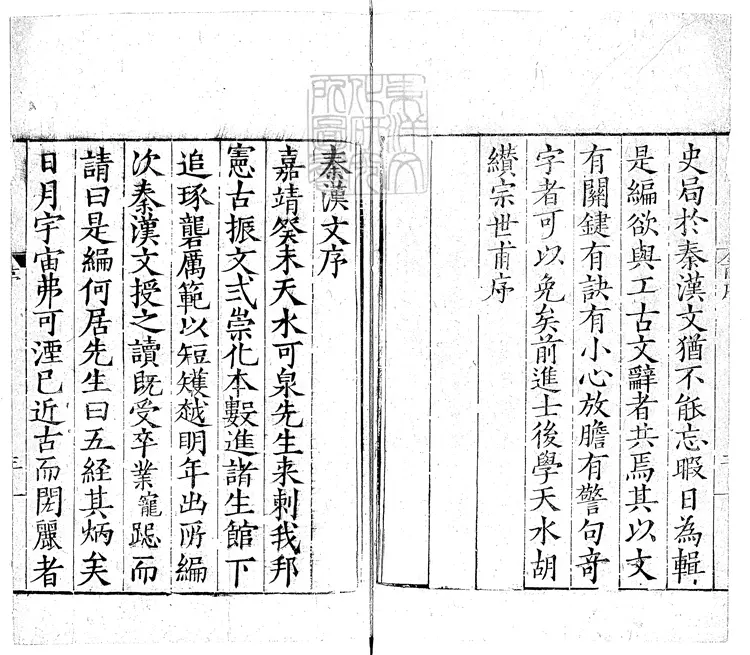 史局於秦漢文猶不能忘暇日為輯
是編欲與工古文辭者共焉其以文
有關鍵有訣有小心放膽有警句奇
字者可以免矣前進士後學天水胡
纘宗世甫序
秦漢文序
嘉靖癸未天水可泉先生来刺我邦
憲古振文弌崇化本數進諸生館下
追琢礱厲範以短矱越明年出所編
次秦漢文授之讀既受卒業籠跽而
請曰是編何居先生曰五経其炳矣
日月宇宙弗可湮已近古而閎麗者